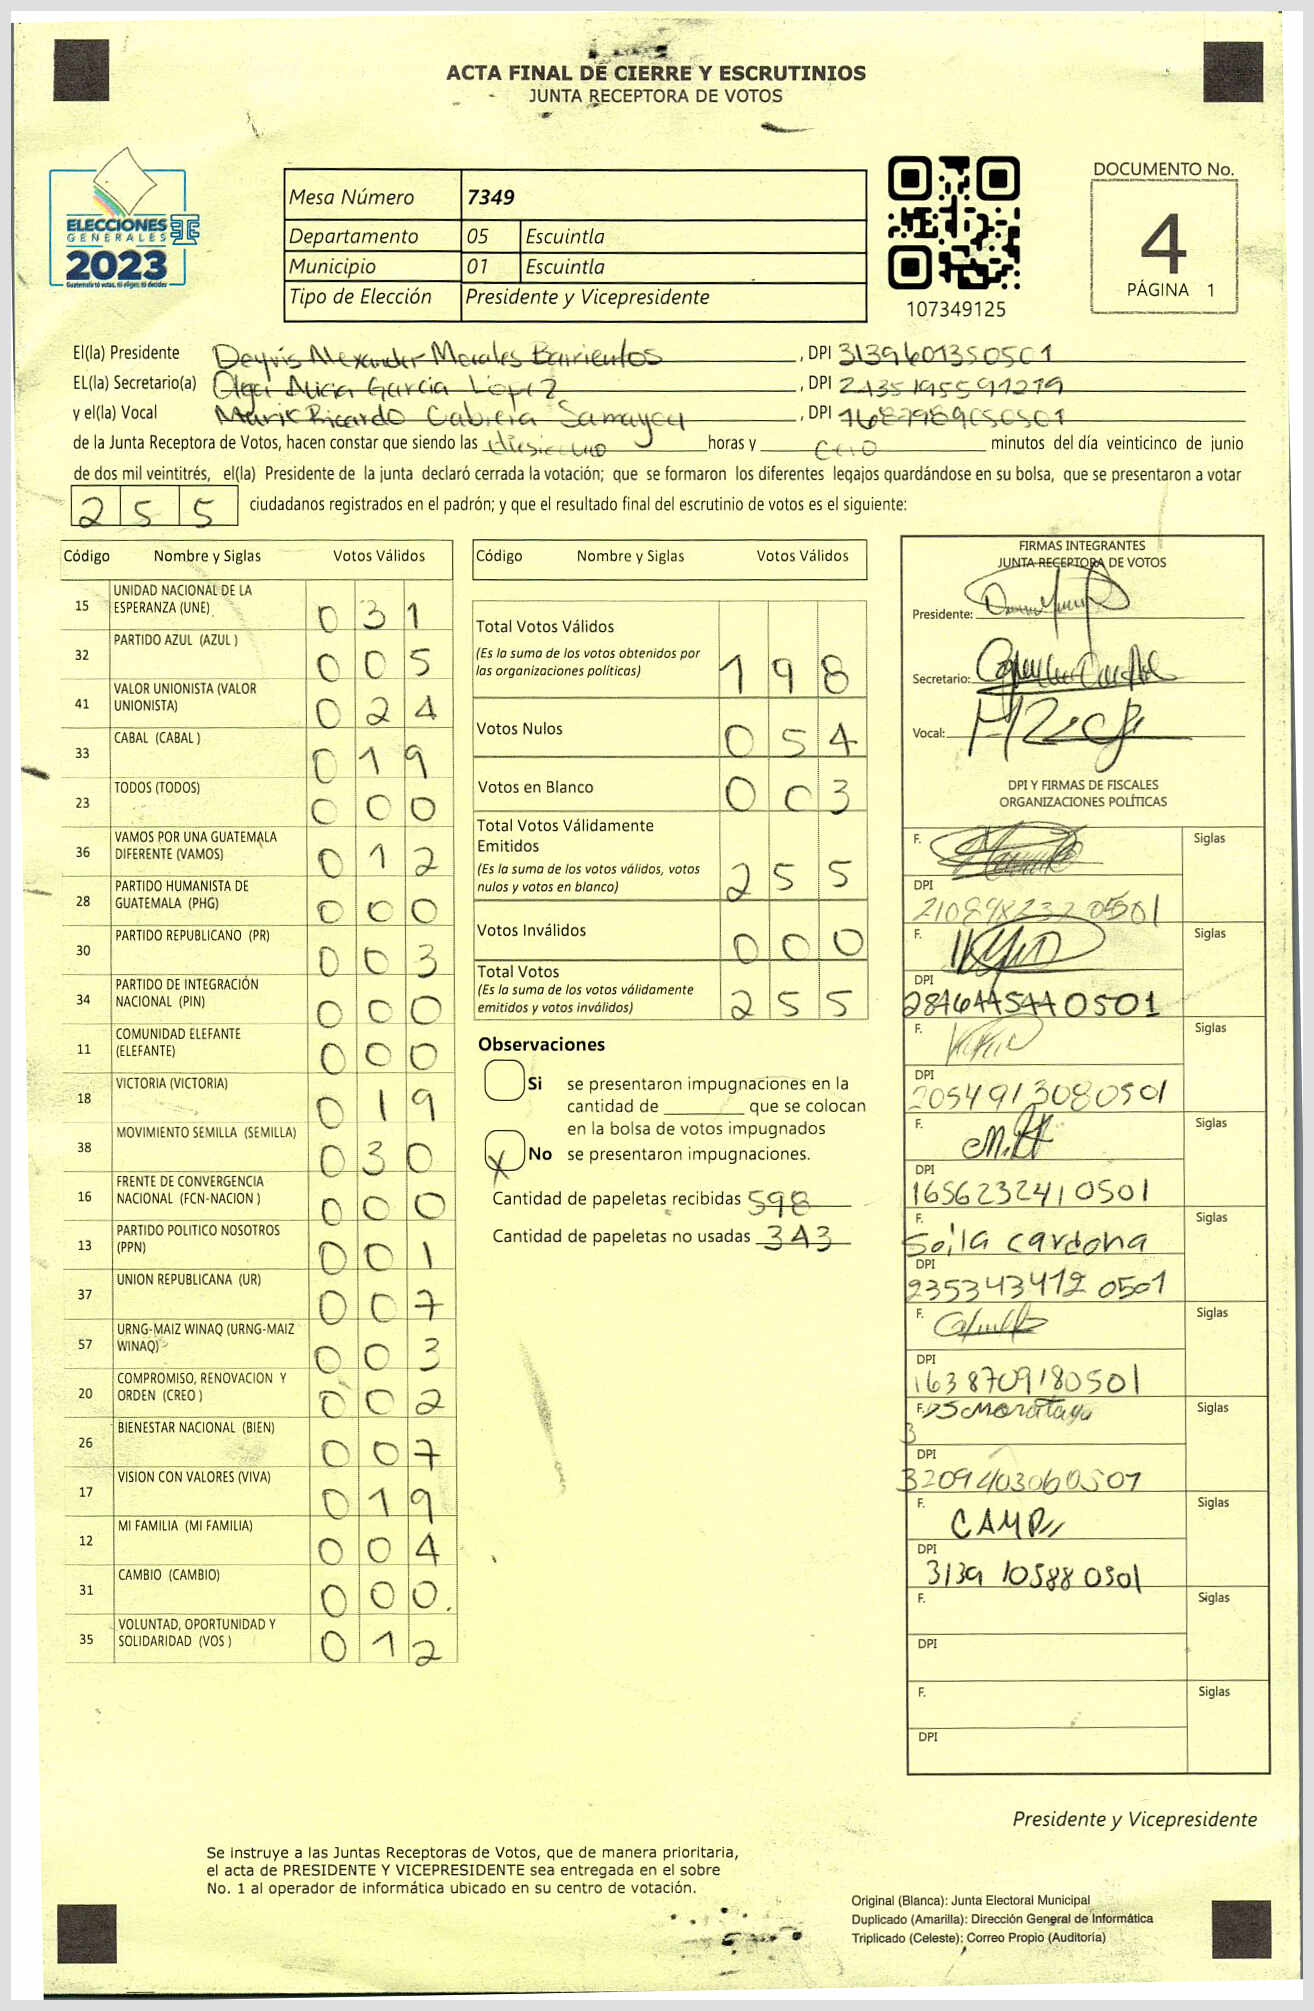 ACTA FINAL DE CIERRE Y ESCRUTINIOS
JUNTA RECEPTORA DE VOTOS
ELECCIONES
GENERALES
2023
Guatemala tú votas, tú eliges, tú decides
Mesa Número 7349
Departamento 05 Escuintla
Municipio 01 Escuintla
Tipo de Elección Presidente y Vicepresidente
107349125
DOCUMENTO No.
4
PÁGINA 1
El(la) Presidente Deyvis Alexander Morales Barrientos, DPI 3139601350501
EL(la) Secretario(a) Olga Alicia Garcia Lopez, DPI
y el(la) Vocal Ricardo Cabrera Samayoa, DPI
de la Junta Receptora de Votos, hacen constar que siendo las horas y cero minutos del día veinticinco de junio
de dos mil veintitrés, el(la) Presidente de la junta declaró cerrada la votación; que se formaron los diferentes legajos guardándose en su bolsa, que se presentaron a votar
255 ciudadanos registrados en el padrón; y que el resultado final del escrutinio de votos es el siguiente:
Código Nombre y Siglas Votos Válidos
15 UNIDAD NACIONAL DE LA ESPERANZA (UNE) 031
32 PARTIDO AZUL (AZUL ) 005
41 VALOR UNIONISTA (VALOR UNIONISTA) 024
33 CABAL (CABAL ) 019
23 TODOS (TODOS) 000
36 VAMOS POR UNA GUATEMALA DIFERENTE (VAMOS) 012
28 PARTIDO HUMANISTA DE GUATEMALA (PHG) 000
30 PARTIDO REPUBLICANO (PR) 003
34 PARTIDO DE INTEGRACIÓN NACIONAL (PIN) 000
11 COMUNIDAD ELEFANTE (ELEFANTE) 000
18 VICTORIA (VICTORIA) 019
38 MOVIMIENTO SEMILLA (SEMILLA) 030
16 FRENTE DE CONVERGENCIA NACIONAL (FCN-NACION ) 000
13 PARTIDO POLITICO NOSOTROS (PPN) 001
37 UNION REPUBLICANA (UR) 007
57 URNG-MAIZ WINAQ (URNG-MAIZ WINAQ) 003
20 COMPROMISO, RENOVACION Y ORDEN (CREO ) 002
26 BIENESTAR NACIONAL (BIEN) 007
17 VISION CON VALORES (VIVA) 019
12 MI FAMILIA (MI FAMILIA) 004
31 CAMBIO (CAMBIO) 000
35 VOLUNTAD, OPORTUNIDAD Y SOLIDARIDAD (VOS ) 012
Código Nombre y Siglas Votos Válidos
Total Votos Válidos
(Es la suma de los votos obtenidos por
las organizaciones políticas) 198
Votos Nulos 054
Votos en Blanco 003
Total Votos Válidamente
Emitidos
(Es la suma de los votos válidos, votos
nulos y votos en blanco) 255
Votos Inválidos 000
Total Votos
(Es la suma de los votos válidamente
emitidos y votos inválidos) 255
Observaciones
Si se presentaron impugnaciones en la
cantidad de ________ que se colocan
en la bolsa de votos impugnados
X No se presentaron impugnaciones.
Cantidad de papeletas recibidas 598
Cantidad de papeletas no usadas 343
FIRMAS INTEGRANTES
JUNTA RECEPTORA DE VOTOS
Presidente:
Secretario:
Vocal:
DPI Y FIRMAS DE FISCALES
ORGANIZACIONES POLÍTICAS
F. Siglas
DPI
F. Siglas
DPI
2846445440501
F. Siglas
DPI
2054913080501
F. Siglas
DPI
1656232410501
F. Siglas
Soila cardona
DPI
2353434120501
F. Siglas
DPI
1638709180501
F. Siglas
DPI
3209403060501
F. Siglas
DPI
3139105880501
F. Siglas
DPI
F. Siglas
DPI
Presidente y Vicepresidente
Se instruye a las Juntas Receptoras de Votos, que de manera prioritaria,
el acta de PRESIDENTE Y VICEPRESIDENTE sea entregada en el sobre
No. 1 al operador de informática ubicado en su centro de votación.
Original (Blanca): Junta Electoral Municipal
Duplicado (Amarilla): Dirección General de Informática
Triplicado (Celeste): Correo Propio (Auditoría)